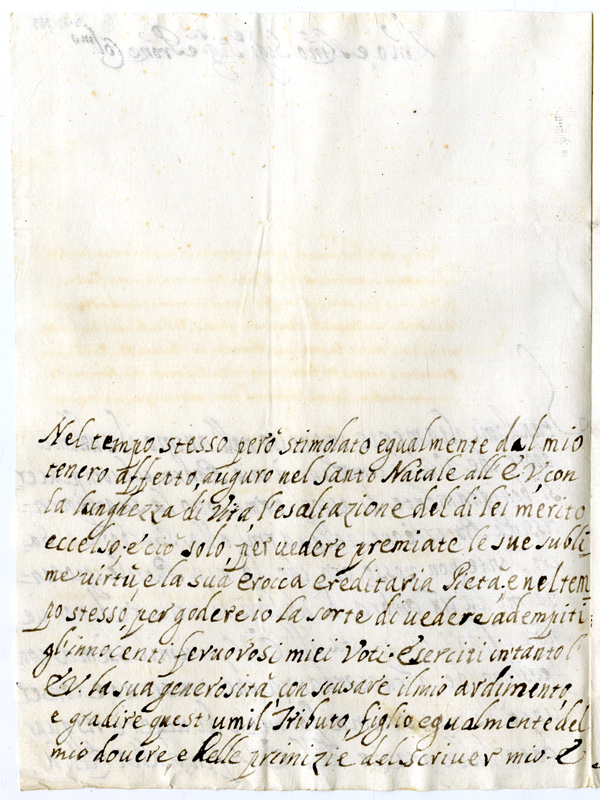 Nel tempo stesso però stimolato egualmente dal mio
tenero affetto, auguro nel Santo Natale all' E V, con
la lunghezza di Vita, l'esaltazione del di lei merito
eccelso, e ciò solo, per vedere premiate le sue subli
me virtù, e la sua eroica ereditaria Pietà, e nel tem
po stesso, per godere io la sorte di vedere adempiti
gl'innocenti feruorosi miei Voti. Eserciti intanto l'
E V. la sua generosità, con scusare il mio ardimento,
e gradire quest' umil' Tributo, figlio egualmente del
mio douere, e delle primizie del scriuer mio. E